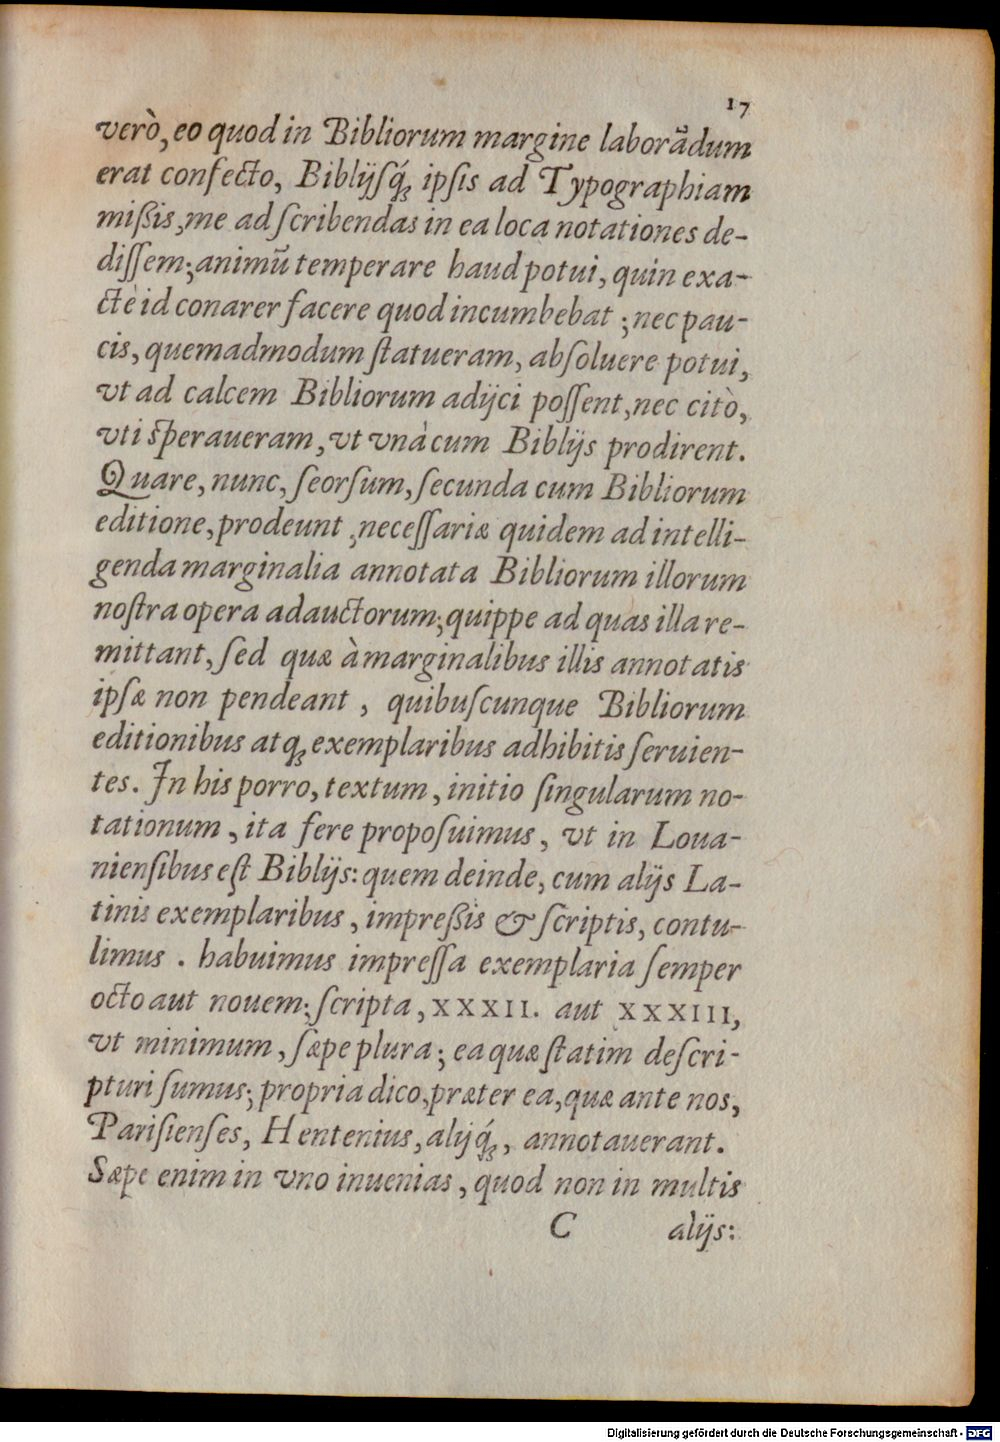 17
verò, eo quod in Bibliorum margine laborãdum
erat confecto, Biblijſq́; ipſis ad Typographiam
mißis, me ad ſcribendas in ea loca notationes de-
diſſem; animũ temperare haud potui, quin exa-
ctè id conarer facere quod incumbebat; nec pau-
cis, quemadmodum ſtatueram, abſoluere potui,
vt ad calcem Bibliorum adijci poſſent, nec citò,
vti ſperaueram, vt vnà cum Biblijs prodirent.
Quare, nunc, ſeorſum, ſecunda cum Bibliorum
editione, prodeunt, neceſſariæ quidem ad intelli-
genda marginalia annotata Bibliorum illorum
noſtra opera adauctorum; quippe ad quas illa re-
mittant, ſed quæ à marginalibus illis annotatis
ipſæ non pendeant, quibuſcunque Bibliorum
editionibus atq; exemplaribus adhibitis ſeruien-
tes. In his porro, textum, initio ſingularum no-
tationum, ita fere propoſuimus, vt in Loua-
nienſibus eſt Biblijs: quem deinde, cum alijs La-
tinis exemplaribus, impreßis & ſcriptis, contu-
limus. habuimus impreſſa exemplaria ſemper
octo aut nouem; ſcripta, XXXII. aut XXXIII,
vt minimum, ſæpe plura; ea quæ ſtatim deſcri-
pturi ſumus; propria dico, præter ea, quæ ante nos,
Pariſienſes, Hentenius, alijq́;, annotauerant.
Sæpe enim in vno inuenias, quod non in multis
C alijs:
Digitalisierung gefördert durch die Deutsche Forschungsgemeinschaft - DFG